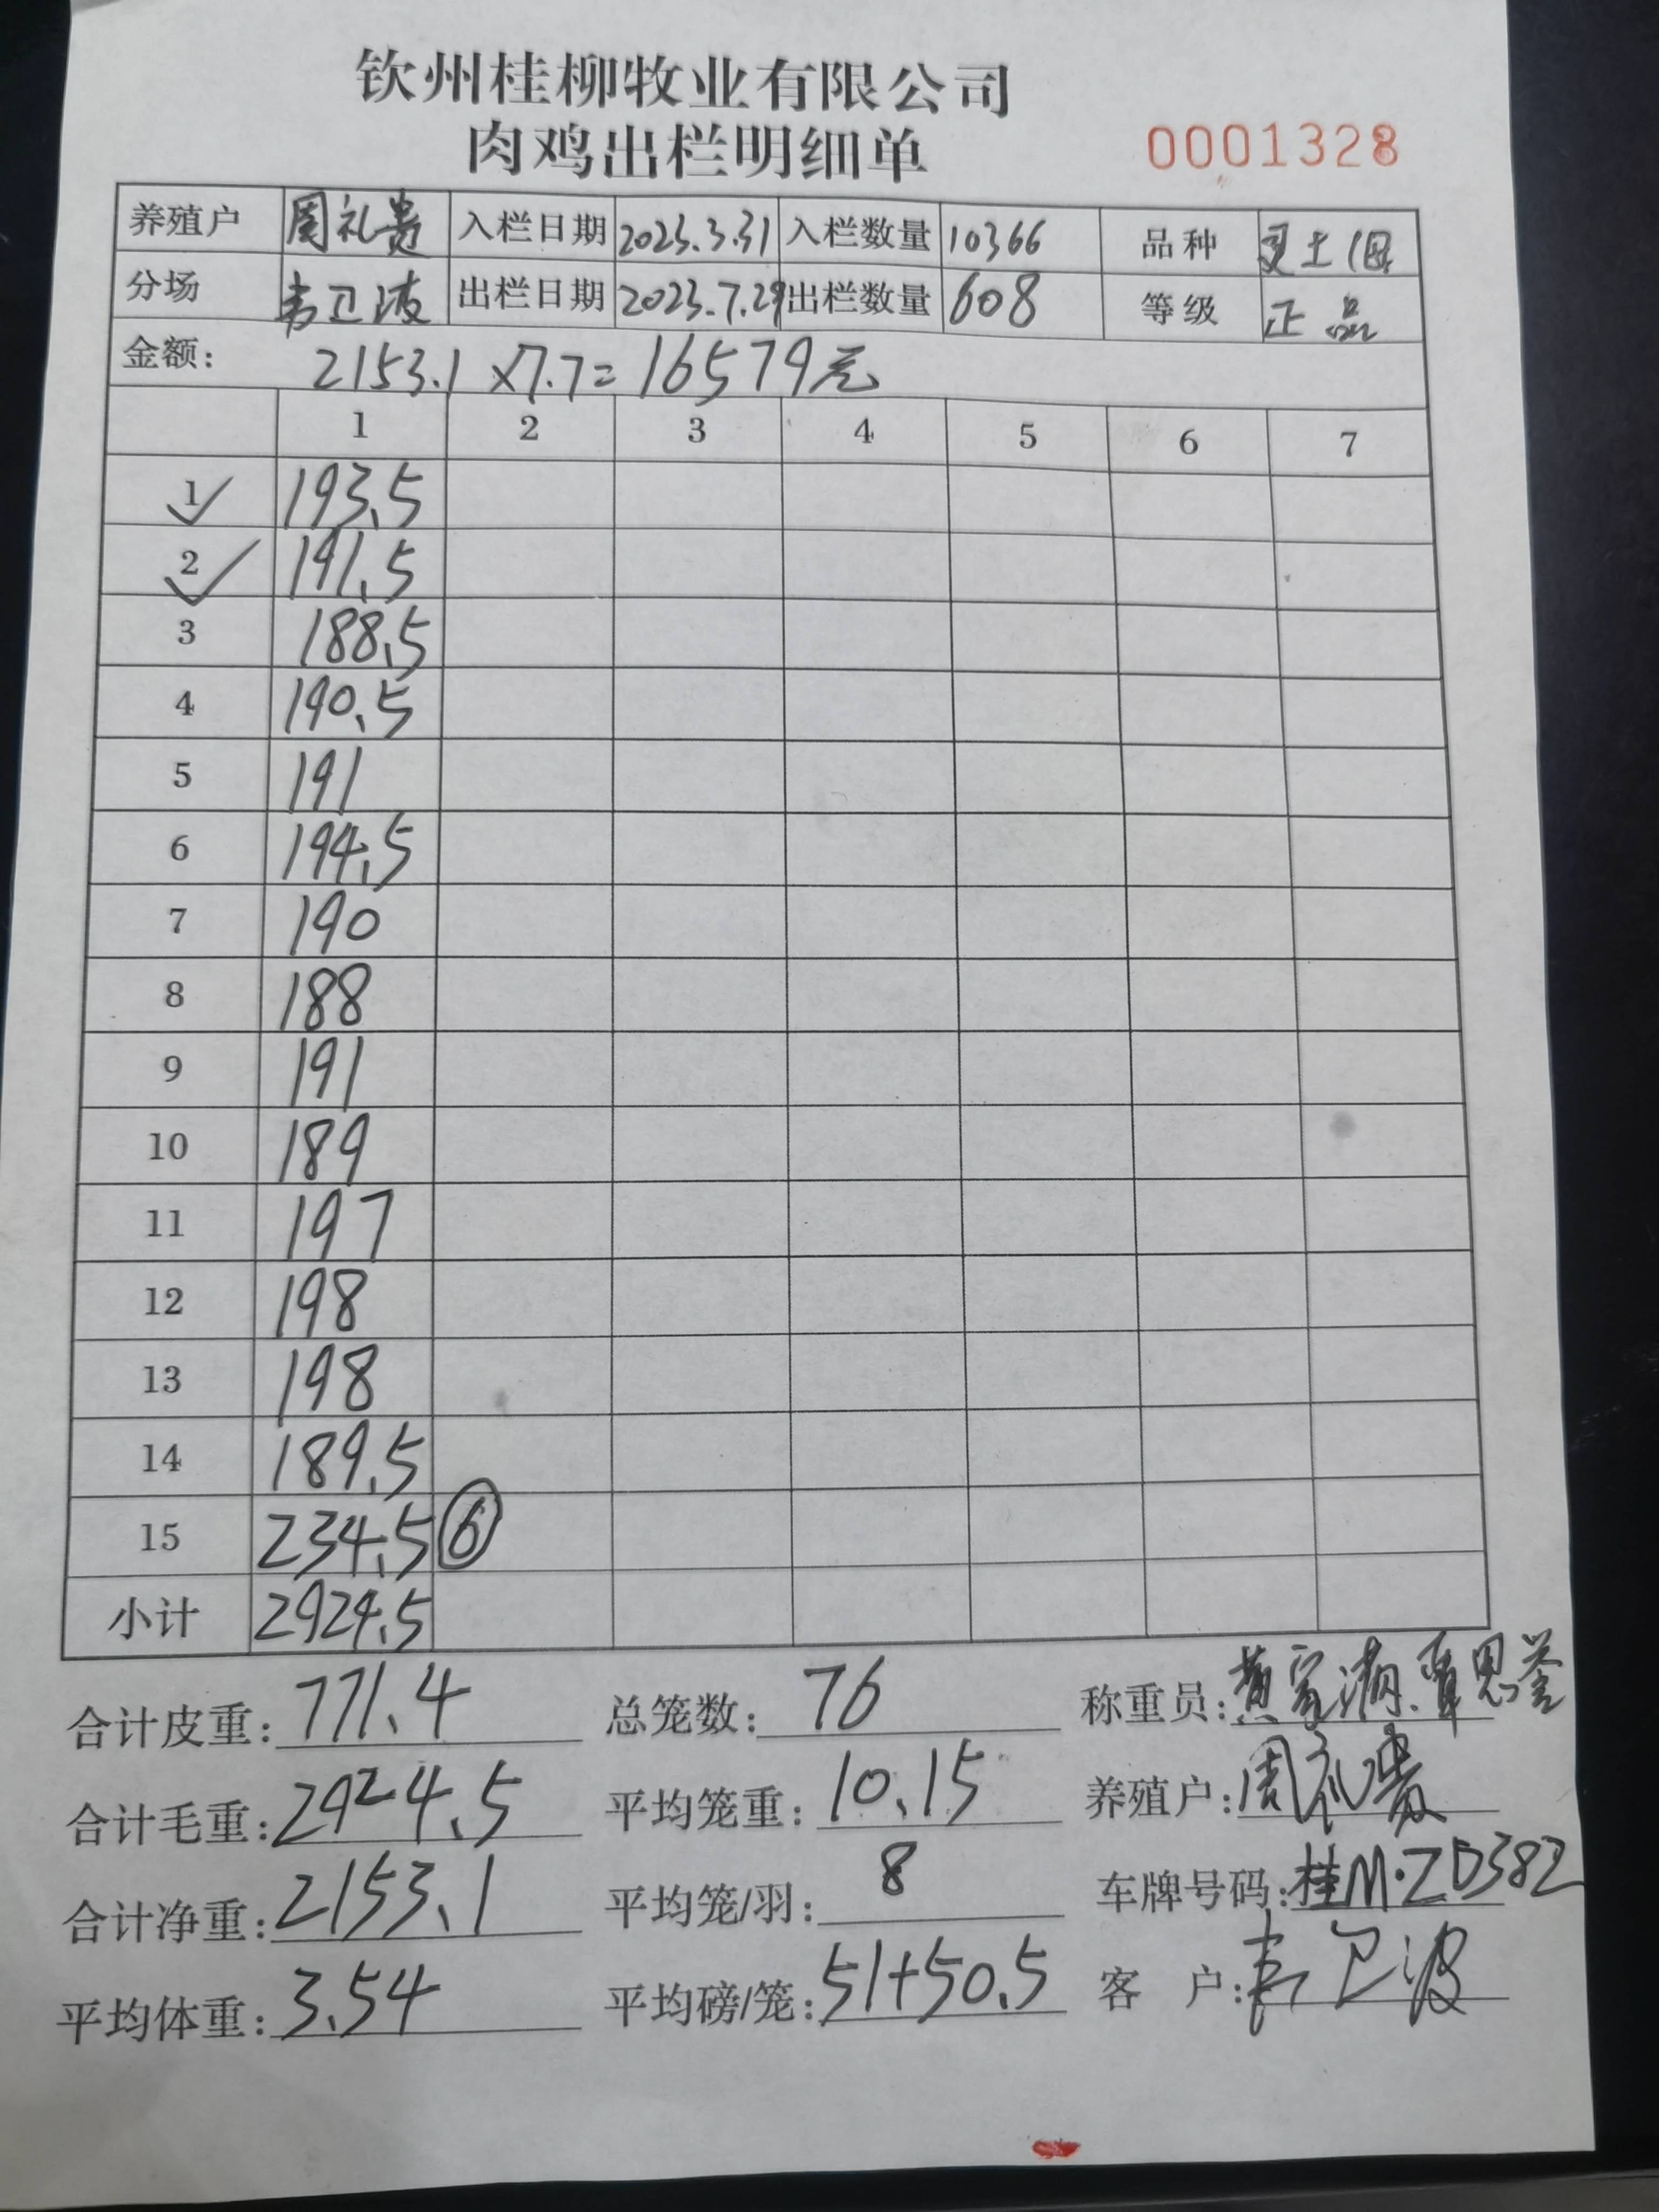 钦州桂柳牧业有限公司
肉鸡出栏明细单 0001328
养殖户 周礼贵 入栏日期 2023.3.31 入栏数量 10366 品种 土1母
分场 韦卫波 出栏日期 2023.7.29 出栏数量 608 等级 正品
金额: 2153.1×7.7=16579元
1 2 3 4 5 6 7
1✓ 193.5
2✓ 191.5
3 188.5
4 190.5
5 191
6 194.5
7 190
8 188
9 191
10 189
11 197
12 198
13 198
14 189.5
15 234.5 ⑥
小计 2924.5
合计皮重: 771.4 总笼数: 76 称重员: 黄家满.覃思誉
合计毛重: 2924.5 平均笼重: 10.15 养殖户: 周礼贵
合计净重: 2153.1 平均笼/羽: 8 车牌号码: 桂M·ZD382
平均体重: 3.54 平均磅/笼: 51+50.5 客 户: 韦卫波